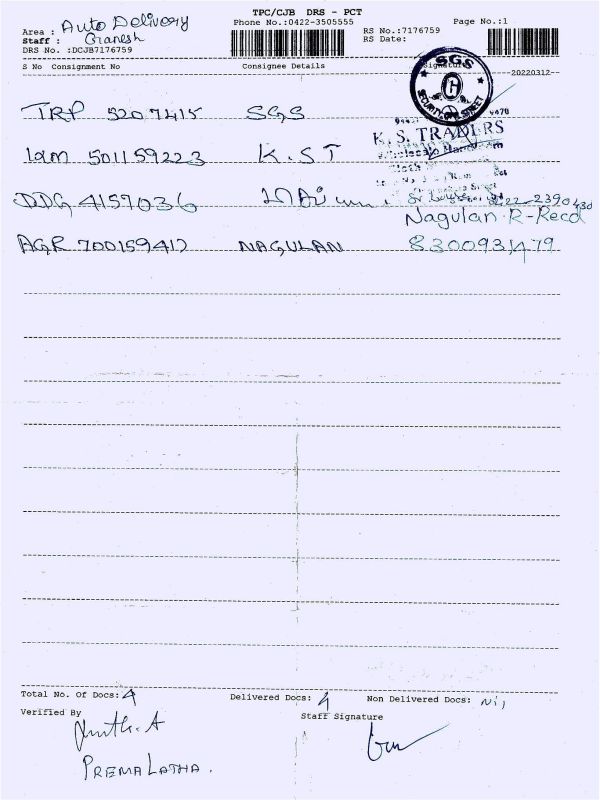 TPC/CJB DRS - PCT
Area : Auto Delivery Phone No.:0422-3505555 RS No.:7176759 Page No.:1
Staff : Ganesh RS Date:
DRS No. :DCJB7176759
S No Consignment No Consignee Details Signature
20220312--
SGS
SECURITY
TRP 5207415 SGS
K.S. TRADERS
IXM 501159223 K.S.T
DDG 4157036
Nagulan R-Recd
AGR 700159417 NAGULAN 8300931479
Total No. Of Docs: 4 Delivered Docs: 4 Non Delivered Docs: Nil
Verified By Staff Signature
PREMALATHA.